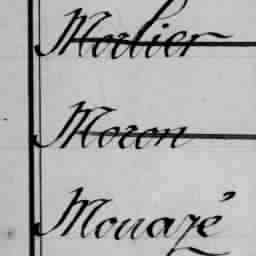 Morlier
Moron
Mouazé